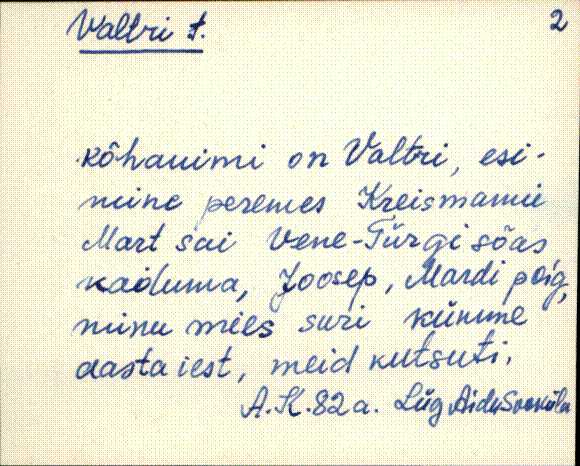 Valtri t. 2
kõhanimi on Valtri, esi-
mine peremes Kreismanni
Mart sai Vene-Türgi sõas
kaduma, Joosep, Mardi poig,
minu mees suri kümme
aasta iest, meid kutsuti.
A.K. 82 a. Lüg Aidu Sooküla